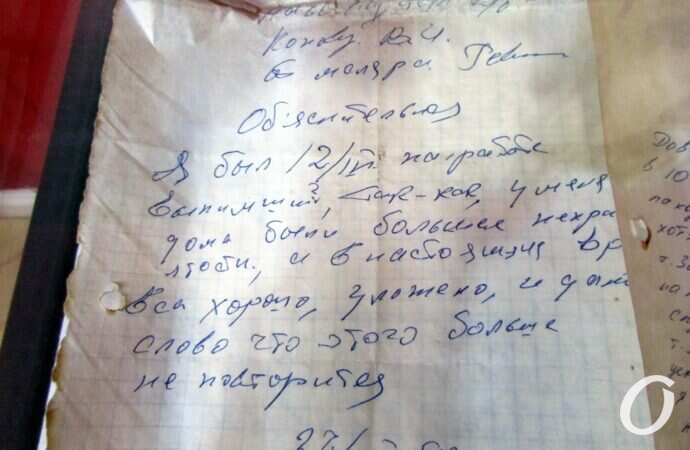 Коново В.И.
малера
Обьяснительная
Я был 12/IV на работе
Выпимший, так-как, у меня
дома были большие непри
ятости, а в настоящия вр
Все хорошо, уложено, и даю
слово что этого больше
не повторится
27/
Дов
в 10
хот
ч. за
на
с
т.
О